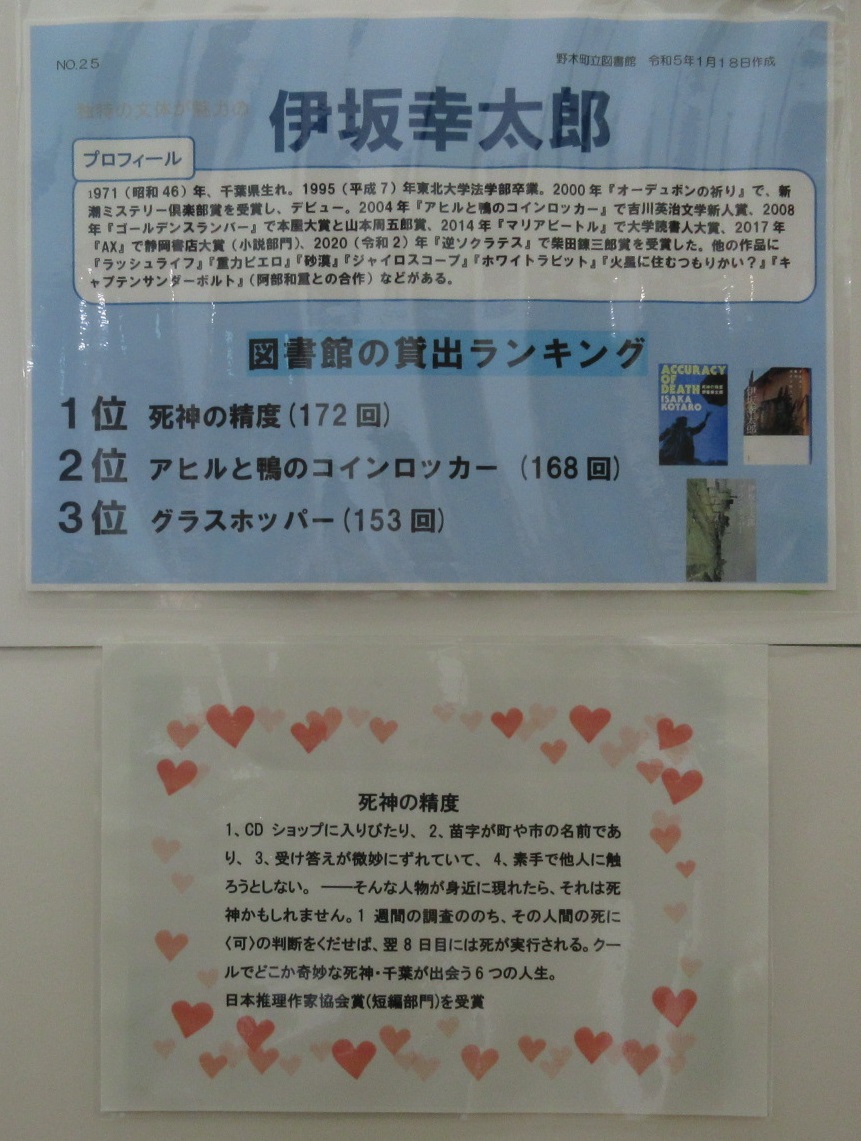 NO.25
野木町立図書館　令和5年1月18日作成
独特の文体が魅力の
伊坂幸太郎
プロフィール
1971（昭和46）年、千葉県生れ。1995（平成7）年東北大学法学部卒業。2000年『オーデュボンの祈り』で、新
潮ミステリー倶楽部賞を受賞し、デビュー。2004年『アヒルと鴨のコインロッカー』で吉川英治文学新人賞、2008
年『ゴールデンスランバー』で本屋大賞と山本周五郎賞、2014年『マリアビートル』で大学読書人大賞、2017年
『AX』で静岡書店大賞（小説部門）、2020（令和2）年『逆ソクラテス』で柴田錬三郎賞を受賞した。他の作品に
『ラッシュライフ』『重力ピエロ』『砂漠』『ジャイロスコープ』『ホワイトラビット』『火星に住むつもりかい？』『キ
ャプテンサンダーボルト』（阿部和重との合作）などがある。
図書館の貸出ランキング
1位 死神の精度(172回)
2位 アヒルと鴨のコインロッカー (168回)
3位 グラスホッパー(153回)
ACCURACY
OF
DEATH
ISAKA
KOTARO
死神の精度
1、CDショップに入りびたり、2、苗字が町や市の名前であ
り、3、受け答えが微妙にずれていて、4、素手で他人に触
ろうとしない。――そんな人物が身近に現れたら、それは死
神かもしれません。1週間の調査ののち、その人間の死に
〈可〉の判断をくだせば、翌8日目には死が実行される。クー
ルでどこか奇妙な死神・千葉が出会う6つの人生。
日本推理作家協会賞(短編部門)を受賞